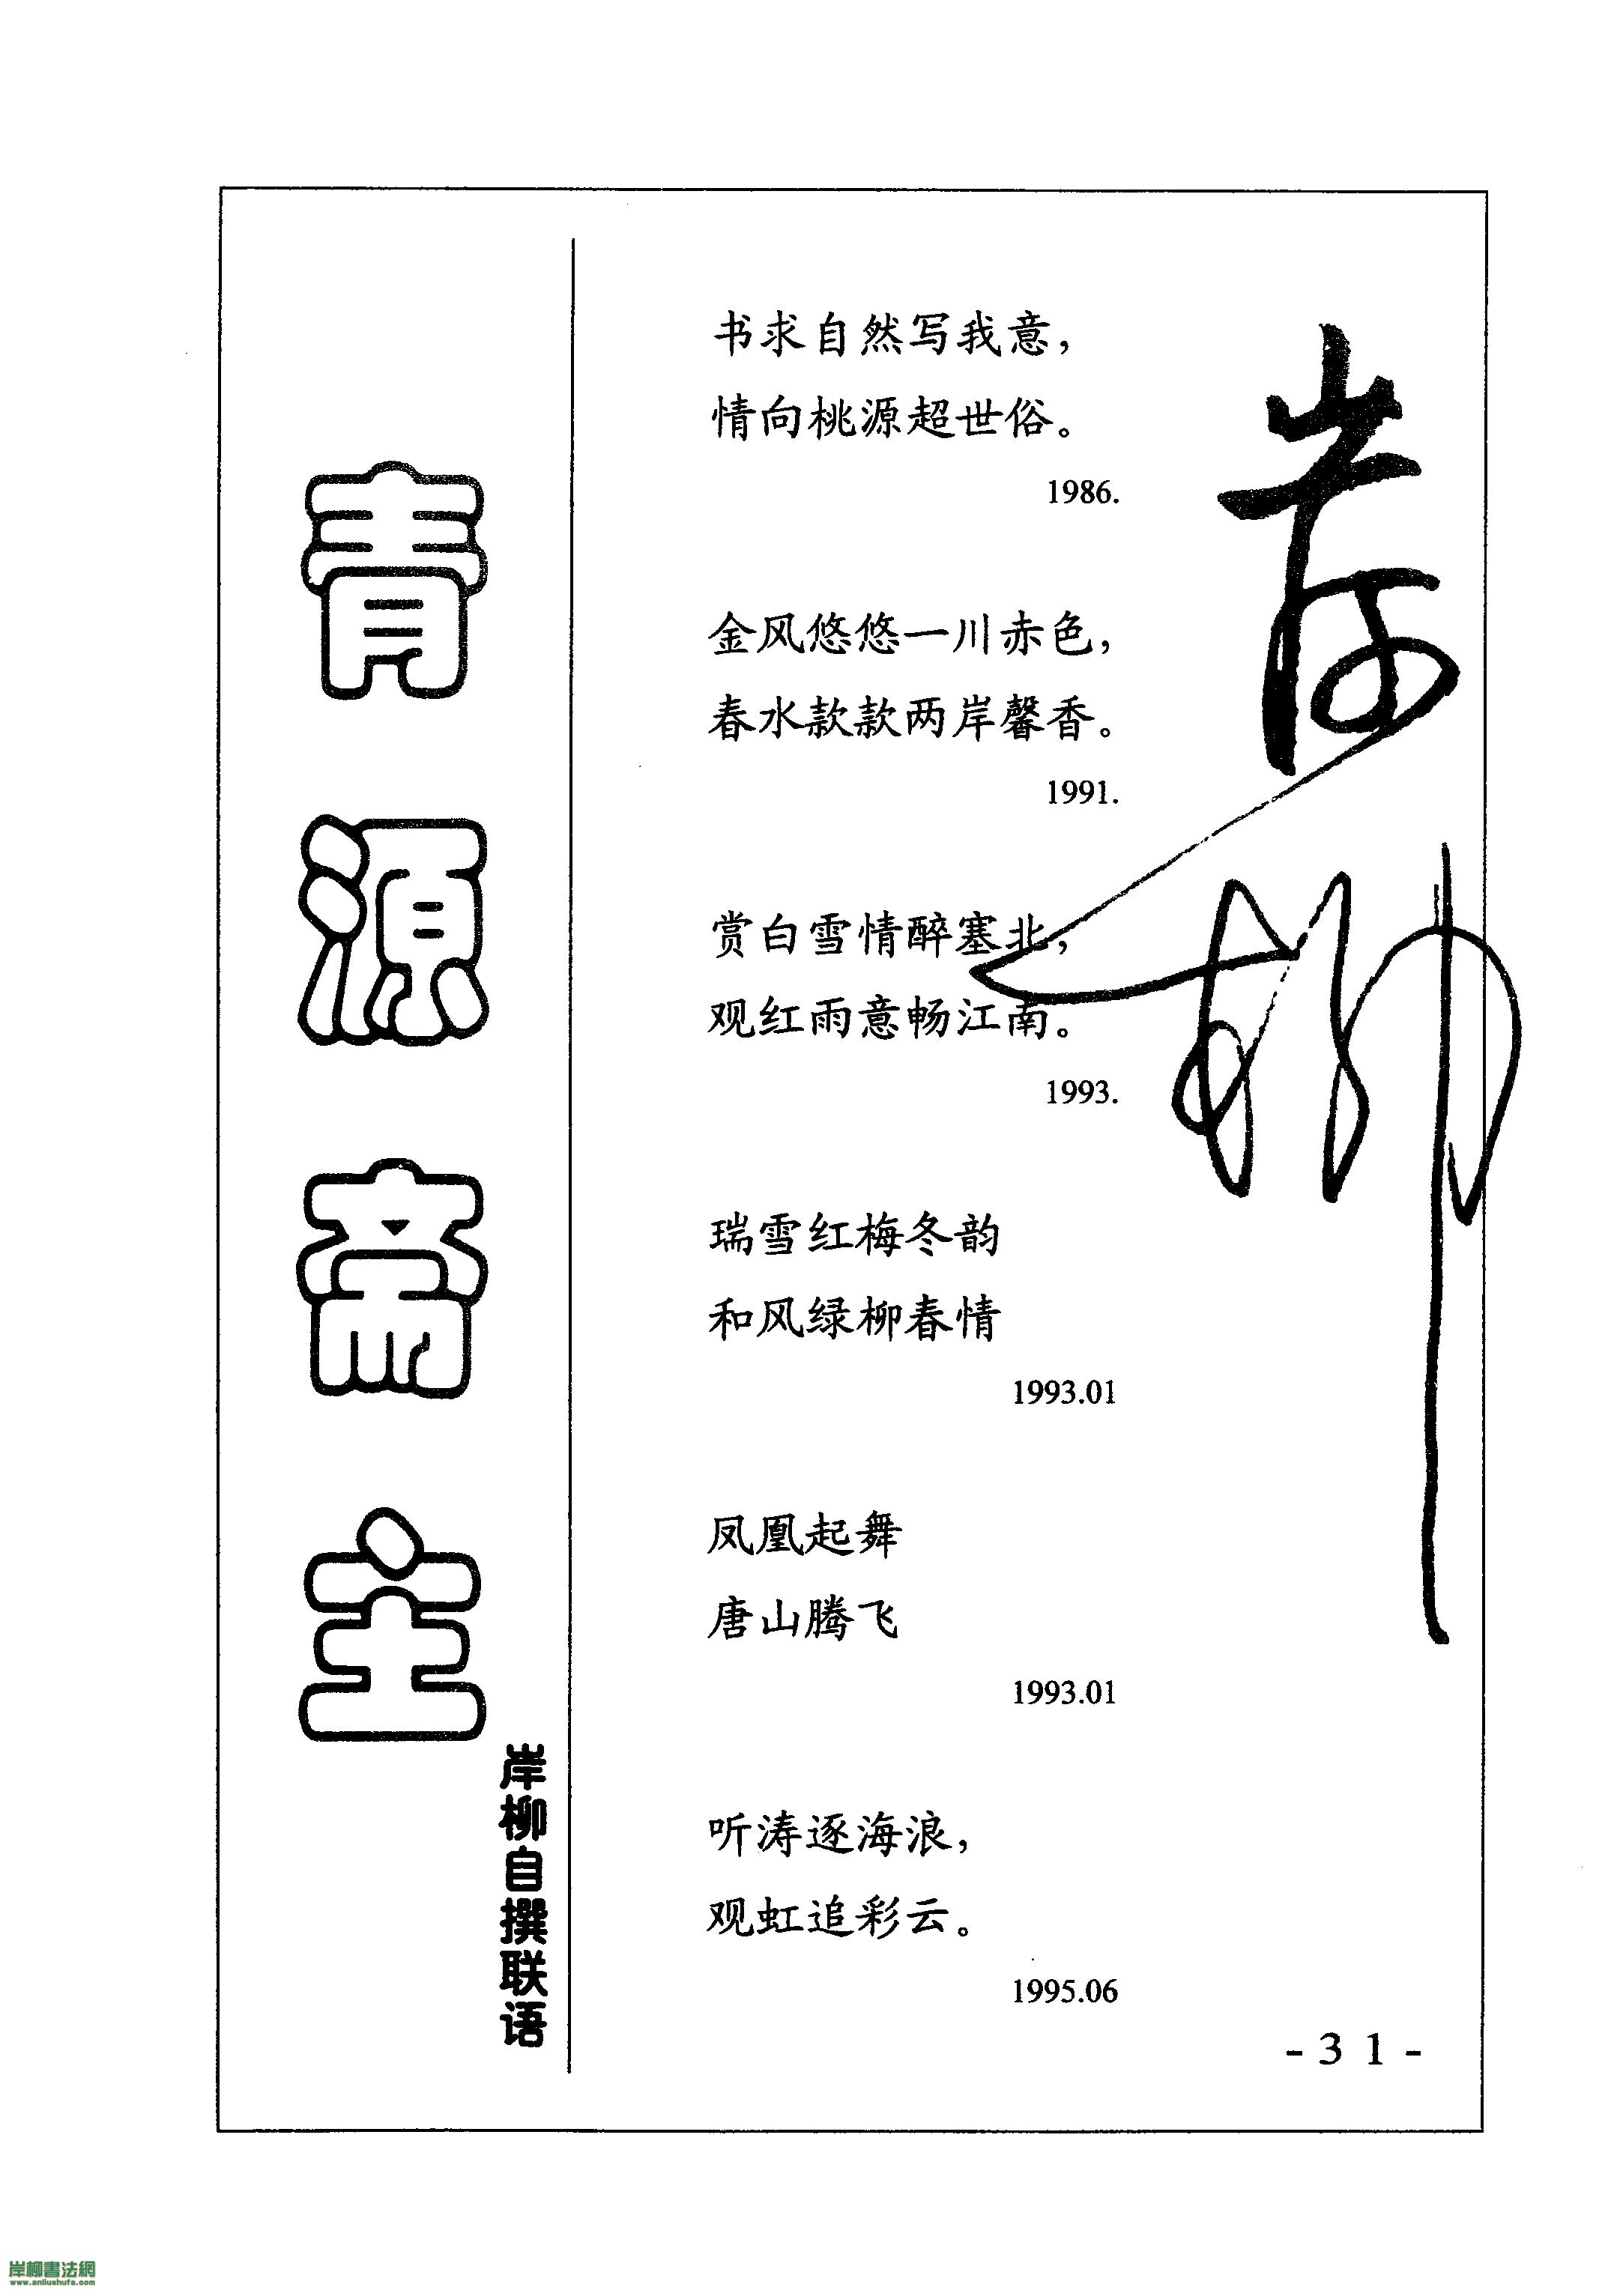 青源斋主
岸柳自撰联语
书求自然写我意，
情向桃源超世俗。
1986.
金风悠悠一川赤色，
春水款款两岸馨香。
1991.
赏白雪情醉塞北，
观红雨意畅江南。
1993.
瑞雪红梅冬韵
和风绿柳春情
1993.01
凤凰起舞
唐山腾飞
1993.01
听涛逐海浪，
观虹追彩云。
1995.06
岸柳
-31-
岸柳書法網
www.anliushufa.com